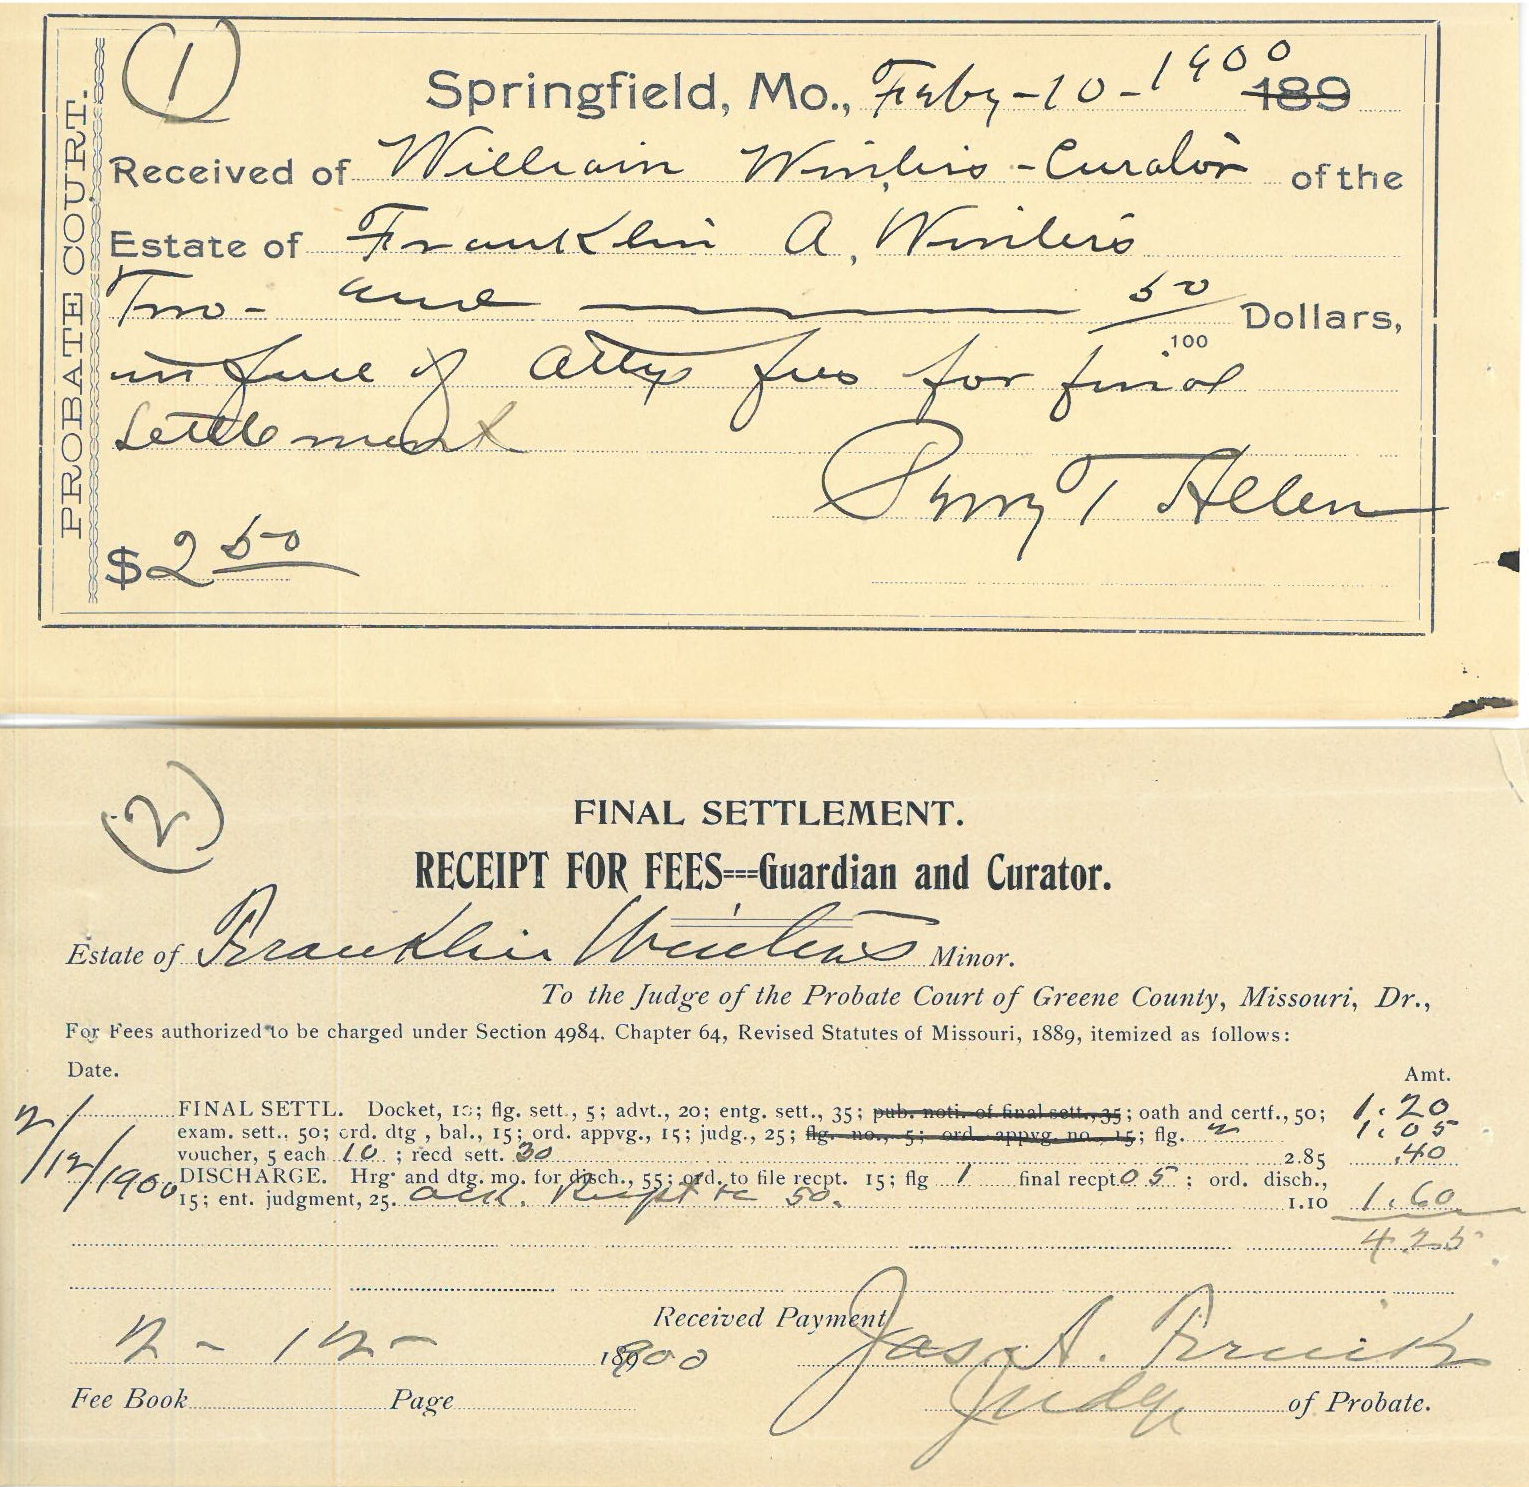 (1)
PROBATE COURT.
Springfield, Mo., Feby-10-1900 189
Received of William Winters - Curator of the
Estate of Franklin A. Winters
Two - and 50/100 Dollars,
in full of Attys fees for final
settlement
Perry T Allen
$2 50
(2)
FINAL SETTLEMENT.
RECEIPT FOR FEES===Guardian and Curator.
Estate of Franklin Winters Minor.
To the Judge of the Probate Court of Greene County, Missouri, Dr.,
For Fees authorized to be charged under Section 4984, Chapter 64, Revised Statutes of Missouri, 1889, itemized as follows:
Date. Amt.
2/12/1900
FINAL SETTL. Docket, 10; flg. sett., 5; advt., 20; entg. sett., 35; pub. noti. of final sett., 35; oath and certf., 50; 1.20
exam. sett., 50; ord. dtg, bal., 15; ord. appvg., 15; judg., 25; flg. no., 5; ord. appvg. no., 15; flg. 2 1.05
voucher, 5 each 10; recd sett. 30 2.85 .40
DISCHARGE. Hrg and dtg. mo. for disch., 55; ord. to file recpt. 15; flg 1 final recpt 05; ord. disch.,
15; ent. judgment, 25. ack. Recpt 50. 1.10 1.60
4.25
Received Payment,
2-12- 1900 Jas. A.
Judge of Probate.
Fee Book Page